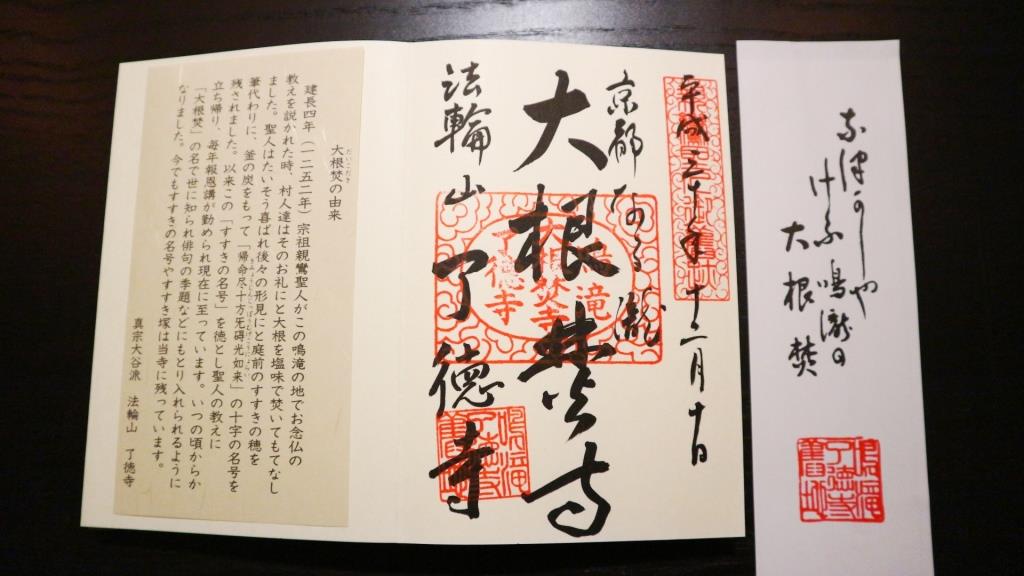 な津かしや
けふ鳴瀧の
大根焚
平成三十年十二月十日
京都なる瀧
大根焚寺
法輪山了徳寺
大根焚の由来
建長四年(一二五二年)宗祖親鸞聖人がこの鳴滝の地でお念仏の
教えを説かれた時、村人達はそのお礼にと大根を塩味で焚いてもてなし
ました。聖人はたいそう喜ばれ後々の形見にと庭前のすすきの穂を
筆代わりに、釜の炭をもって「帰命尽十方旡碍光如来」の十字の名号を
残されました。以来この「すすきの名号」を徳とし聖人の教えに
立ち帰り、毎年報恩講が勤められ現在に至っています。いつの頃からか
「大根焚」の名で世に知られ俳句の季題などにもとり入れられるように
なりました。今でもすすきの名号やすすき塚は当寺に残っています。
真宗大谷派 法輪山 了徳寺